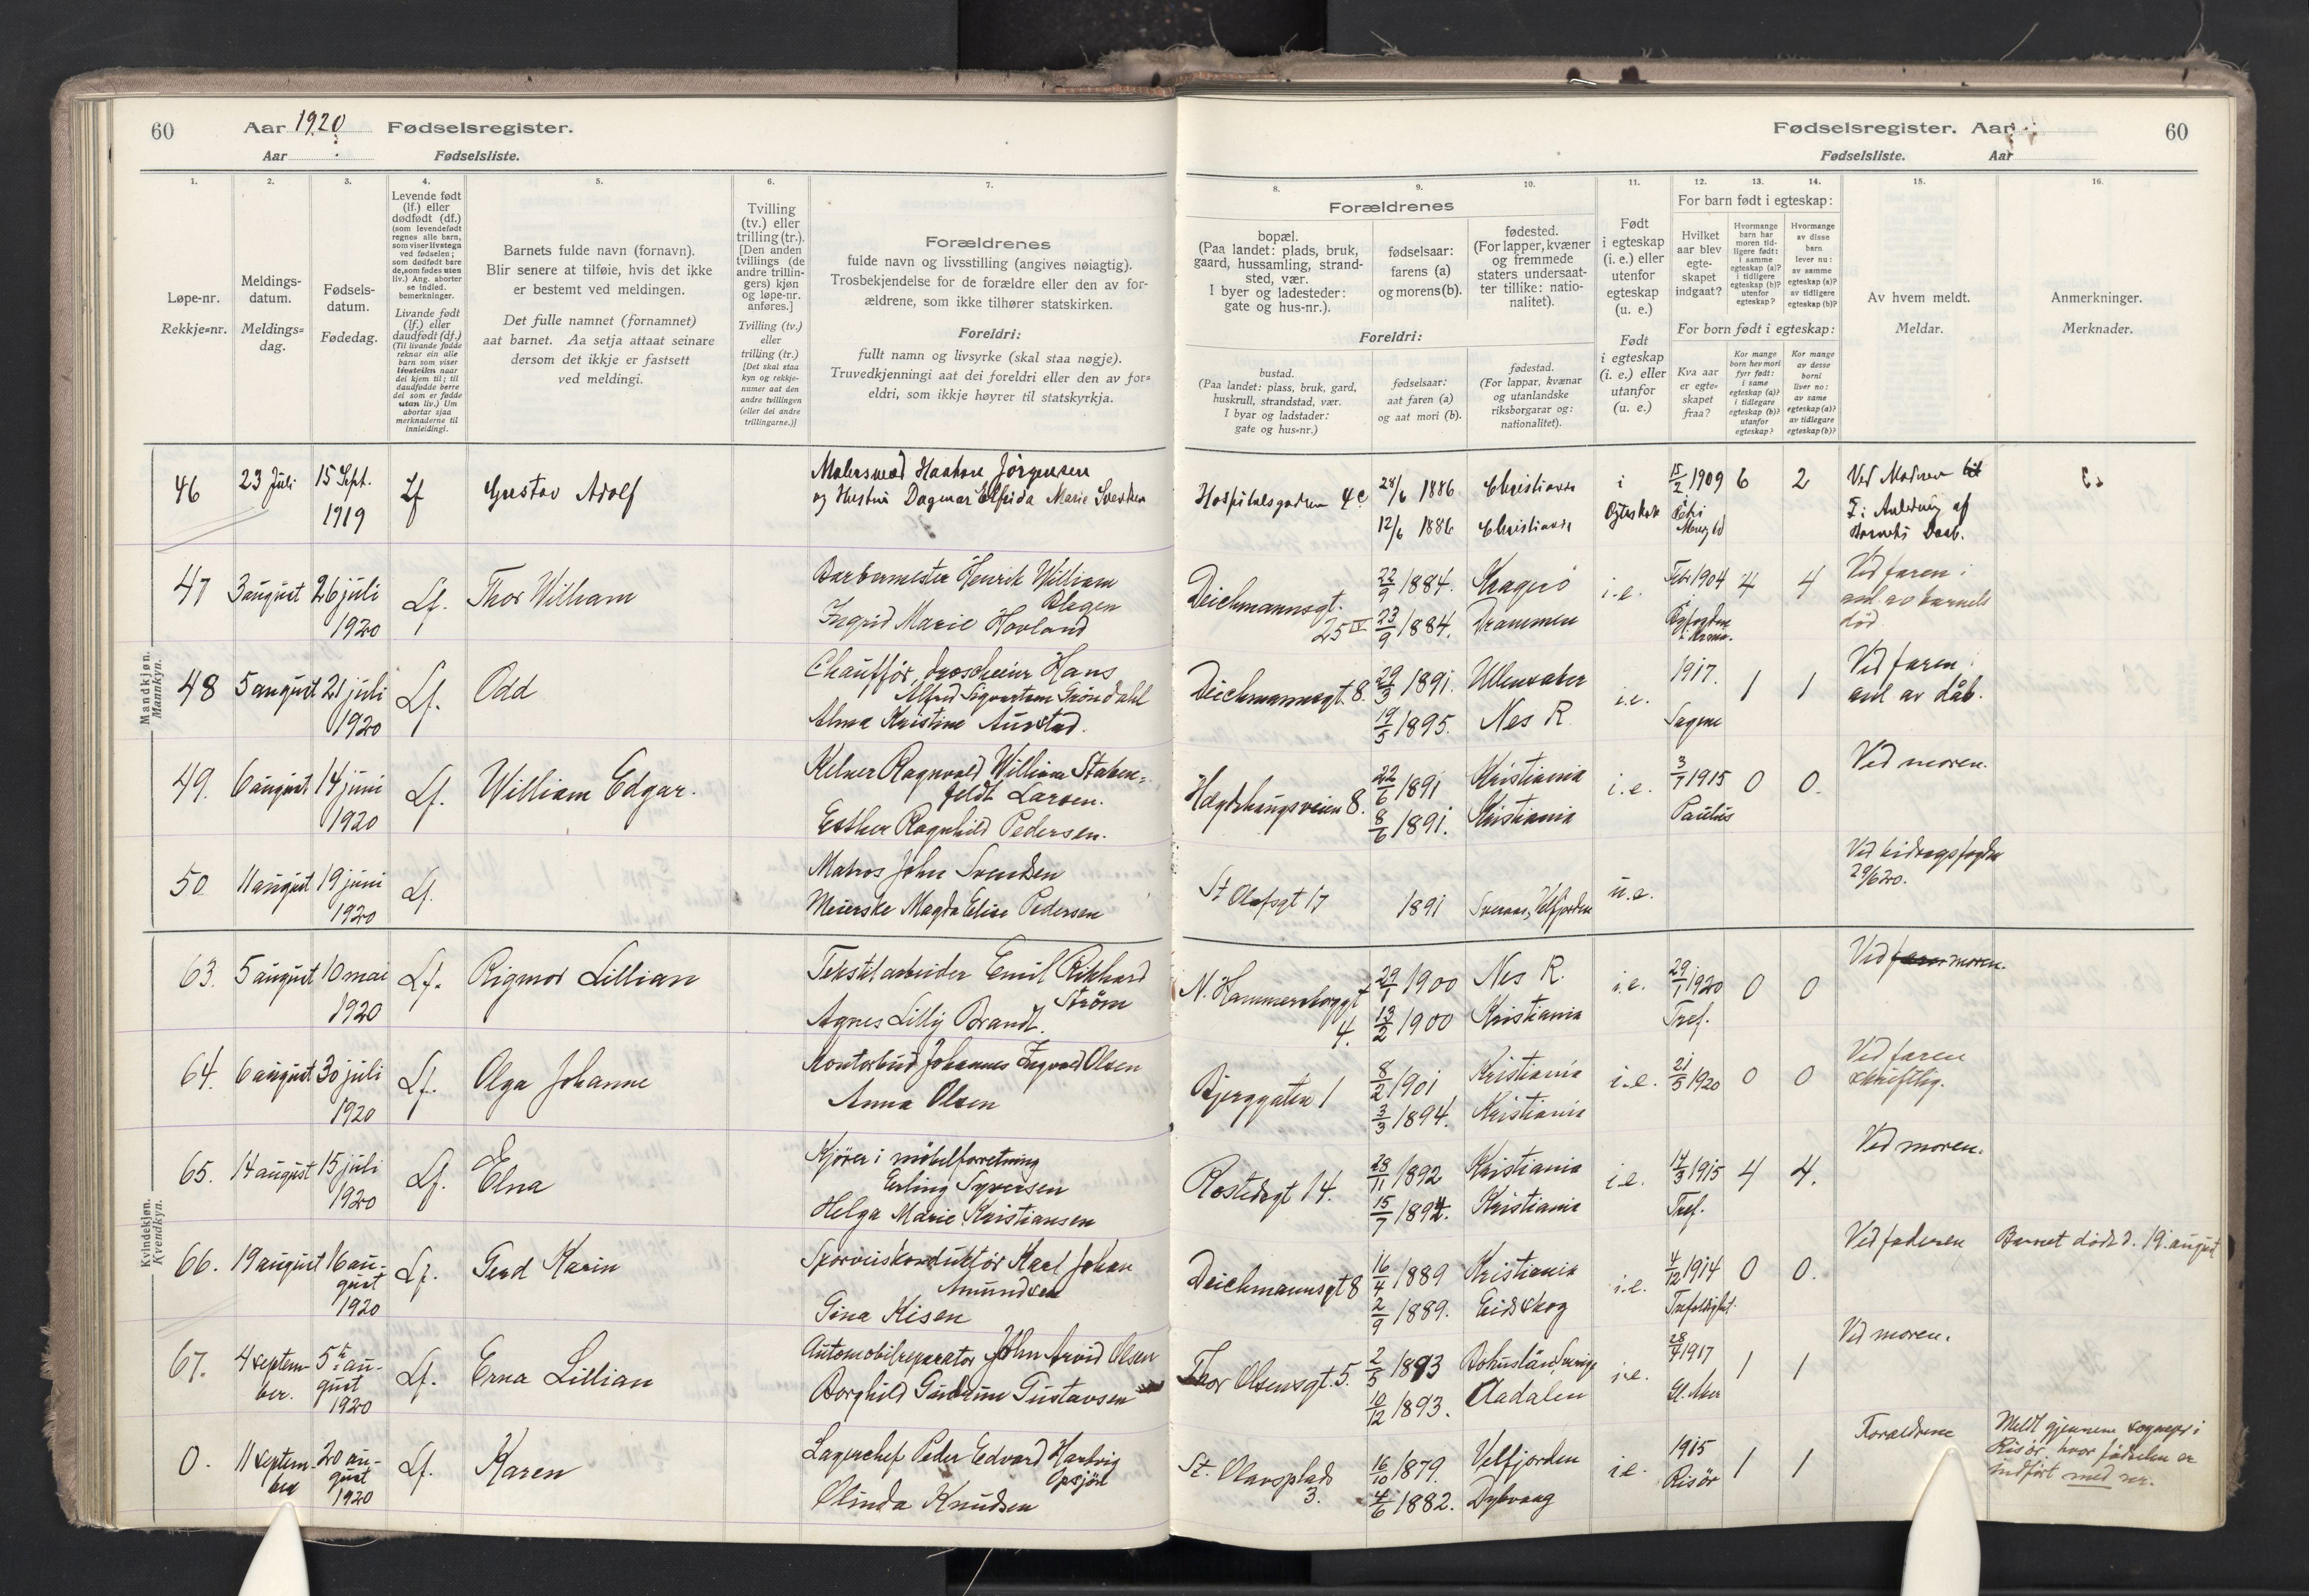 60 Aar 1920 Fødselsregister.
Aar Fødselsliste.
Fødselsregister. Aar 60
Fødselsliste. Aar
1. 2. 3. 4. 5. 6. 7. 8. 9. 10. 11. 12. 13. 14. 15. 16.
Løpe-nr.
Rekkje-nr.
Meldings-
datum.
Meldings-
dag.
Fødsels-
datum.
Fødedag.
Levende født
(lf.) eller
dødfødt (df.)
(som levendefødt
regnes alle barn,
som viser livstegn
ved fødselen;
som dødfødt bare
de, som fødes uten
liv.) Ang. aborter
se indled.
bemerkninger.
Livande født
(lf.) eller
daudfødt (df.)
(Til livande fødde
reknar ein alle
barn som viser
livsteikn naar
dei kjem til; til
daudfødde berre
dei som er fødde
utan liv.) Um
abortar sjaa
merknaderne til
innleidingi.
Barnets fulde navn (fornavn).
Blir senere at tilføie, hvis det ikke
er bestemt ved meldingen.
Det fulle namnet (fornamnet)
aat barnet. Aa setja attaat seinare
dersom det ikkje er fastsett
ved meldingi.
Tvilling
(tv.) eller
trilling (tr.).
[Den anden
tvillings (de
andre trillin-
gers) kjøn
og løpe-nr.
anføres.]
Tvilling (tv.)
eller
trilling (tr.)
[Det skal staa
kyn og rekkje-
numer aat den
andre tvillingen
(eller dei andre
trillingarne.)]
Forældrenes
fulde navn og livsstilling (angives nøiagtig).
Trosbekjendelse for de forældre eller den av for-
ældrene, som ikke tilhører statskirken.
Foreldri:
fullt namn og livsyrke (skal staa nøgje).
Truvedkjenningi aat dei foreldri eller den av for-
eldri, som ikkje høyrer til statskyrkja.
Forældrenes
bopæl.
(Paa landet: plads, bruk,
gaard, hussamling, strand-
sted, vær.
I byer og ladesteder:
gate og hus-nr.).
fødselsaar:
farens (a)
og morens (b).
fødested.
(For lapper, kvæner
og fremmede
staters undersaat-
ter tillike: natio-
nalitet).
Foreldri:
bustad.
(Paa landet: plass, bruk, gard,
huskrull, strandstad, vær.
I byar og ladstader:
gate og hus-nr.)
fødselsaar:
aat faren (a)
og aat mori (b).
fødestad.
(For lappar, kvænar
og utanlandske
riksborgarar og:
nationalitet).
Født
i egteskap
(i. e.) eller
utenfor
egteskap
(u. e.)
Født
i egteskap
(i. e.) eller
utanfor
(u. e.)
For barn født i egteskap:
Hvilket
aar blev
egte-
skapet
indgaat?
Hvormange
barn har
moren tid-
ligere født:
i samme
egteskap (a)?
i tidligere
egteskap (b)?
utenfor
egteskap?
Hvormange
av disse
barn
lever nu:
av samme
egteskap (a)?
av tidligere
egteskap (b)?
For born født i egteskap:
Kva aar
er egte-
skapet
fraa?
Kor mange
born hev mori
fyrr født:
i same
egteskap (a)?
i tidlegare
egteskap (b)?
utanfor
egteskap?
Kor mange
av desse
borni
liver no:
av same
egteskap (a)?
av tidlegare
egteskap (b)?
Av hvem meldt.
Meldar.
Anmerkninger.
Merknader.
Mandkjøn.
Mannkyn.
46 23 Juli 15 Sept. 1919 Lf Gustav Adolf
Malersvend Haakon Jørgensen
og Hustru Dagmar Elfrida Marie
Hospitalsgaden 4c 28/6 1886 Christiania
12/6 1886 Christiania
i Egteskab 15/2 1909 Petri Menighed 6 2
Ved Moderen
I Anledning af
Barnets Daab.
47 3 august 26 juli 1920 Lf. Thor William
Barbermester Henrik William
Hagen
Ingrid Marie Hovland
Deichmannsgt. 25 IV 22/9 1884. Kragerö
23/9 1884. Drammen
i.e. Febr 1904 4 4
Ved faren i
anl. av barnets
död
48 5 august 21 juli 1920 Lf. Odd
Chauffør, droscheeier Hans
Alfred Sigvartsen Gröndahl
Alma Kristine Austad.
Deichmannsgt. 8. 29/3 1891. Ullensaker
19/5 1895. Nes R.
i.e. 1917. Sagene 1 1
Ved faren i
anl av dåb.
49. 6 august 14 juni 1920 Lf. William Edgar.
Kelner Ragnvald William Staben=
feldt Larsen.
Esther Ragnhild Pedersen.
Hægdehaugsveien 8. 22/6 1891 Kristiania
8/6 1891. Kristiania
i.e. 3/7 1915 Paulus 0 0.
Ved moren.
50 11 august 19 juni 1920 Lf.
Matros John Svendsen
Meierske Magda Elise Pedersen
St Olafsgt 17 1891 Velfjorden
u.e.
Ved bidragsfogden
29/6 20.
Kvindekjøn.
Kvendkyn.
63. 5 august 10 mai 1920 Lf. Rigmor Lillian
Tekstilarbeider Emil Rikhard
Ström
Agnes Lilly Brandt.
N. Hammersborggt 4. 29/1 1900 Nes R.
13/2 1900 Kristiania
i.e. 29/1 1920 Tref. 0 0
Ved faren moren.
64. 6 august 30 juli 1920 Lf. Olga Johanne
Kontorbud Johannes Ingvald Olsen
Anna Olsen
Bjerggaten 1 8/2 1901 Kristiania
3/3 1894. Kristiania
i.e. 21/5 1920 0 0
Ved faren
skriftlig.
65. 14 august 15 juli 1920 Lf. Elna
Kjörer i möbelforretning
Erling Syversen
Helga Marie Kristiansen
Rostedsgt 14. 28/11 1892 Kristiania
15/7 1894. Kristiania
i.e. 14/3 1915 Tref. 4 4.
Ved moren.
66. 19 august 16 au-
gust 1920 Lf. Gerd Karin
Sporveiskonduktör Karl Johan
Amundsen
Gina Kisen
Deichmannsgt 8 16/4 1889 Kristiania
2/9 1889. Eidskog
i.e. 4/12 1914 Trefoldighet. 0 0.
Ved faderen Barnet död d. 19. august
67. 4 septem-
ber. 5te au-
gust 1920 Lf. Erna Lillian
Automobilreparatør John Arvid Olsen
Borghild Gudrun Gustavsen
Thor Olsensgt. 5. 2/5 1893 Bohuslän, Sverige
10/12 1893. Aadalen
i.e. 28/7 1917 Gl. Aker 1 1
Ved moren.
0. 11 septem-
ber 20 au-
gust 1920 Lf. Karen
Lagerchef Peder Edvard Hartvig
Opsjön
Olinda Knudsen
St. Olavsplads 3. 16/10 1879. Velfjorden
4/6 1882. Dybvaag
i.e. 1915 Risör 1 1
Foreldrene
Meldt gjennem sognepr i
Risör hvor fødselen er
indført med nr.